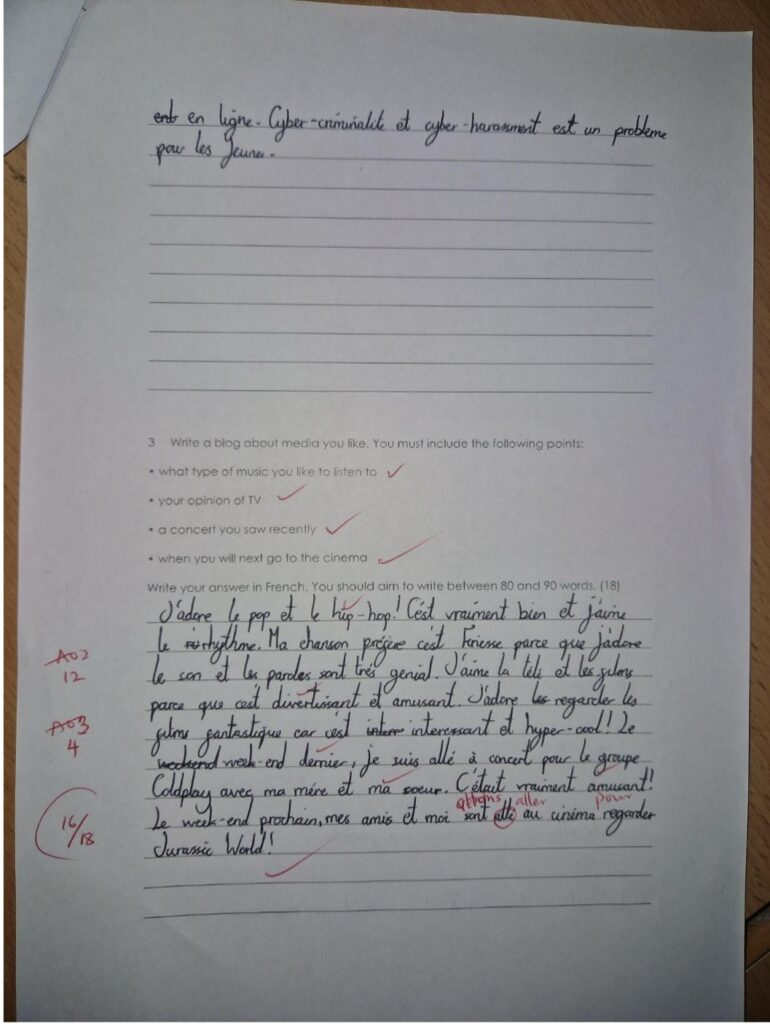 en ligne. Cyber-criminalité et cyber-harassment est un probleme
pour les Jeunes.
3 Write a blog about media you like. You must include the following points:
• what type of music you like to listen to
• your opinion of TV
• a concert you saw recently
• when you will next go to the cinema
Write your answer in French. You should aim to write between 80 and 90 words. (18)
J'adore le pop et le hip-hop! C'est vraiment bien et j'aime
le rhythme. Ma chanson préfère c'est parce que j'adore
AO2
12
le son et les paroles sont trés genial. J'aime la télé et les films
parce que c'est divertissant et amusant. J'adore regarder les
AO3
4
films fantastique car c'est interessant et hyper-cool! Le
week-end dernier, je suis allé à concert pour le groupe
Coldplay avec ma mére et ma soeur. C'était vraiment amusant!
allons aller pour
16/18
Le week-end prochain, mes amis et moi sont allé au cinéma regarder
Jurassic World!